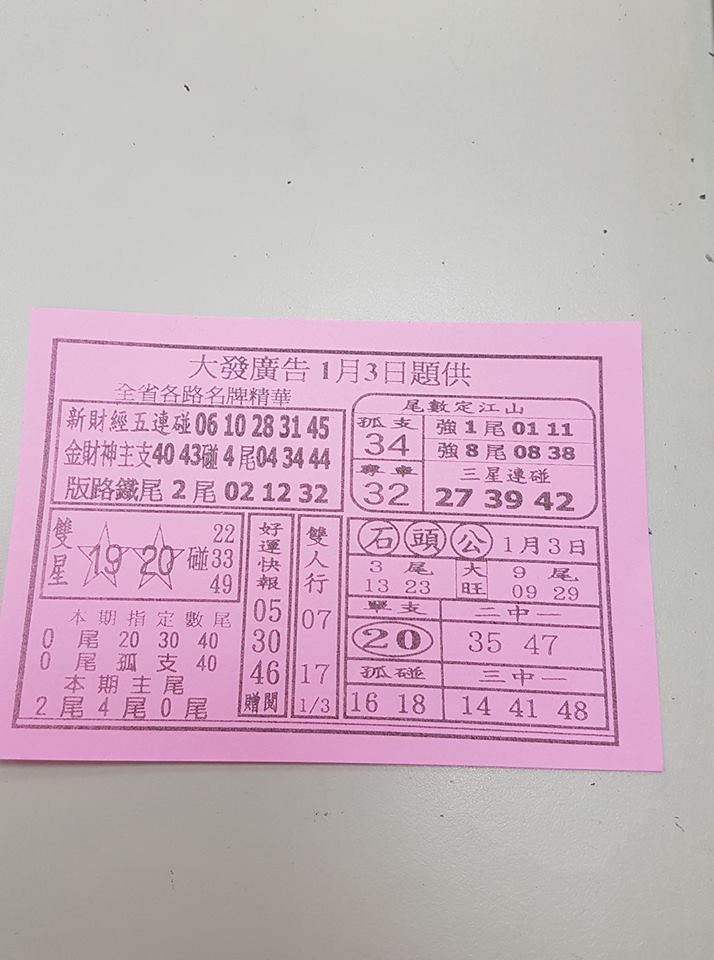 大發廣告 1月3日題供
全省各路名牌精華
新財經五連碰 06 10 28 31 45
金財神主支 40 43 碰 4 尾 04 34 44
版路鐵尾 2 尾 02 12 32
尾數定江山
孤支
34
專車
32
強 1 尾 01 11
強 8 尾 08 38
三星連碰
27 39 42
雙星
19 20 碰
22
33
49
本期指定數尾
0 尾 20 30 40
0 尾 孤 支 40
本期主尾
2 尾 4 尾 0 尾
好運快報
05
30
46
贈閱
雙人行
07
17
1/3
石頭公 1月3日
3 尾
13 23
大旺
9 尾
09 29
單支
20
二中一
35 47
孤碰
16 18
三中一
14 41 48